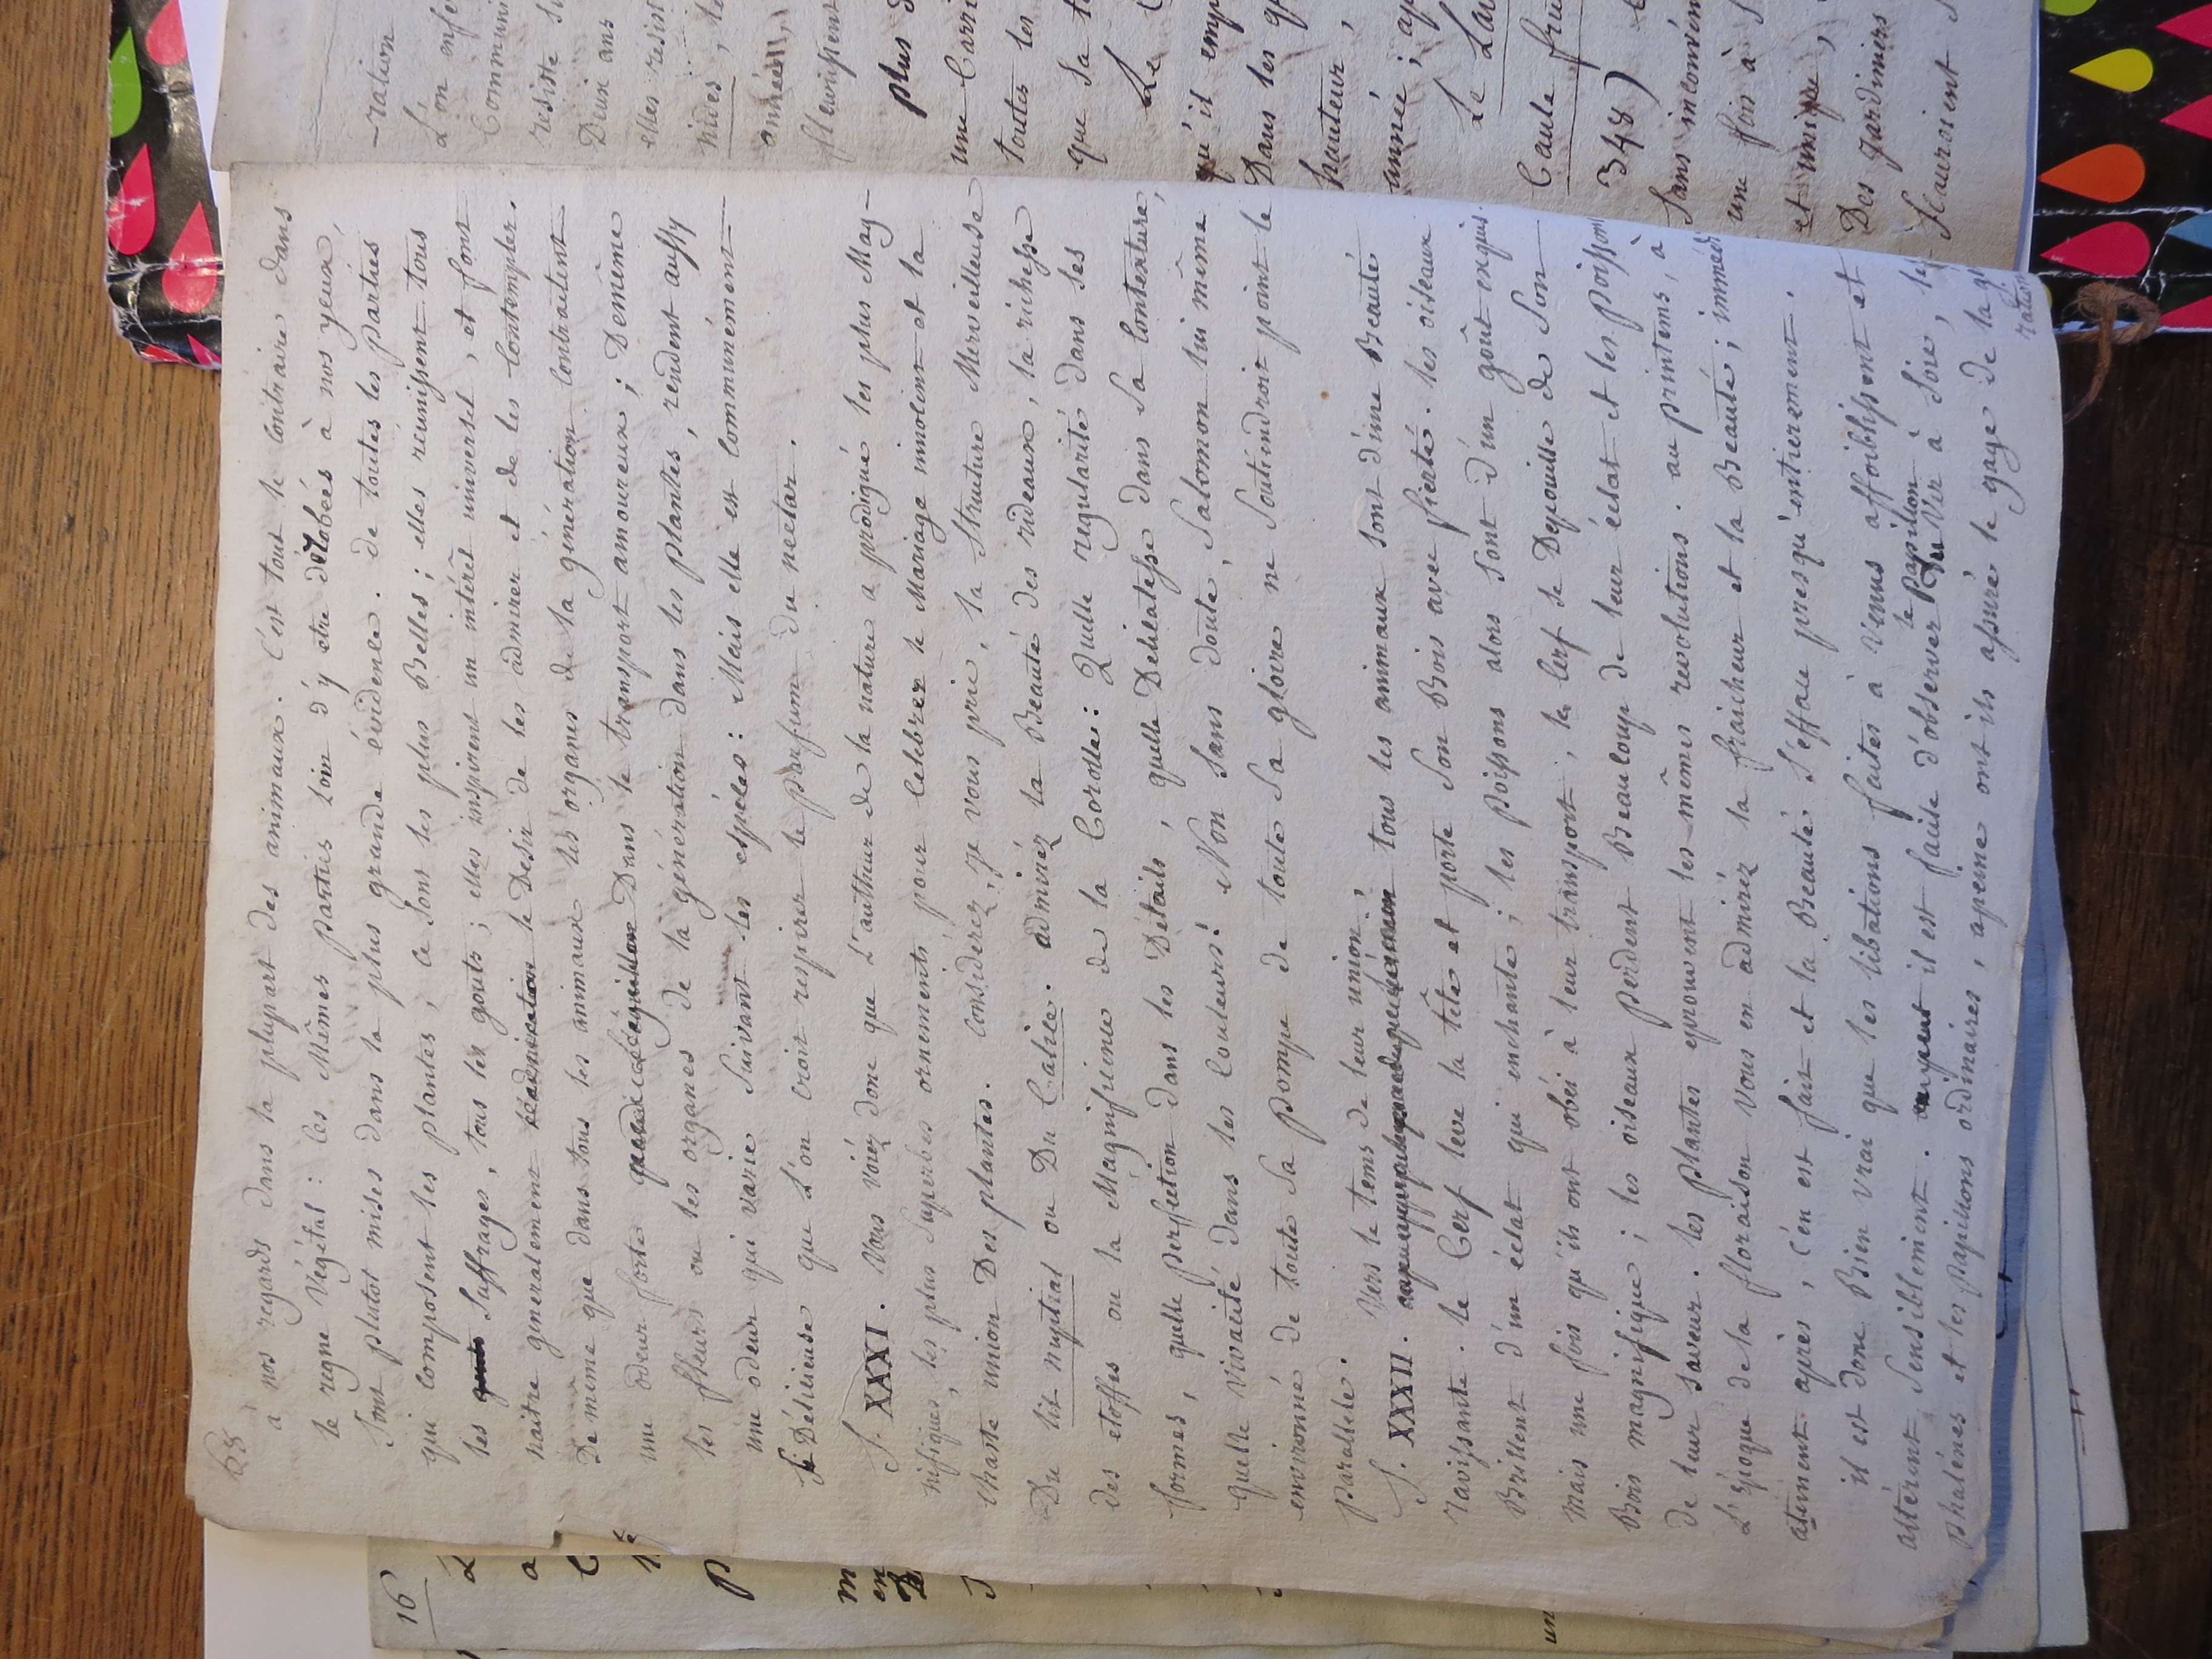 68
à nos regards dans la plupart des animaux. C'est tout le contraire dans
le regne Végétal : les Mêmes parties loin d'y etre dérobées à nos yeux,
sont plutot mises dans la plus grande évidence. de toutes les parties
qui composent les plantes, ce sont les plus Belles ; elles réunissent tous
les suffrages, tous les gouts ; elles inspirent un intérêt universel, et font
naitre generalement le Desir de les admirer et de les Contempler.
De même que dans tous les animaux les organes de la génération contractent
une odeur forte Dans le transport amoureux ; Demême
les fleurs ou les organes de la génération dans les plantes, rendent aussy
une odeur qui varie suivant les espéces : Mais elle est communément
si Délicieuse que l'on croit respirer le parfum du nectar.
§. XXXI. Vous voiez donc que L'autheur de la nature a prodigué les plus Mag-
nifiques, les plus superbes ornements pour celebrer le Mariage innolent et la
chaste union Des plantes. considérez, je vous prie, la structure Merveilleuse
Du lit nuptial ou Du Calice. admirez la Beauté des rideaux, la richesse
des etoffes ou la Magnificence de la Corolle : Quelle regularité dans ses
formes, quelle perfection dans les Détails, quelle Délicatesse dans sa Contexture,
quelle vivacité dans les Couleurs ! Non sans doute, Salomon lui même
environné de toute sa pompe de toute sa gloire ne soutiendroit point le
parallele.
Vers le tems de leur union,
§. XXXII. tous les animaux sont d'une Beauté
ravissante. le Cerf leve la tête et porte son Bois avec fierté. les oiseaux
Brillent d'un éclat qui enchante ; les poissons alors sont d'un goût exquis.
Mais une fois qu'ils ont obéi à leur transport, le Cerf se Depouille de son
Bois magnifique ; les oiseaux perdent Beaucoup de leur éclat et les poissons
de leur saveur. les plantes eprouvent les mêmes revolutions. au printems, à
L'époque de la floraison vous en admirez la fraicheur et la Beauté ; immédi
atement après, c'en est fait et la Beauté s'efface presqu'entierement.
il est donc Bien vrai que les libations faites à Venus affoiblissent et
altérent sensiblement. il est facile d'observer
le papillon
du Vér à soie, les
phalénes et les papillons ordinaires, apeine ont ils assuré le gage de la gé-
ration
-ration
L'on enfe
Communi
resiste
Deux ans
elles resist
fleurissent
plus
une Carri
toutes les
que sa
Le
qu'il emp
Dans les
hauteur,
année ;
Le
Caule
348)
sans inconvén
une fois à
et unique,
Des jardiniers
sçauroient
16